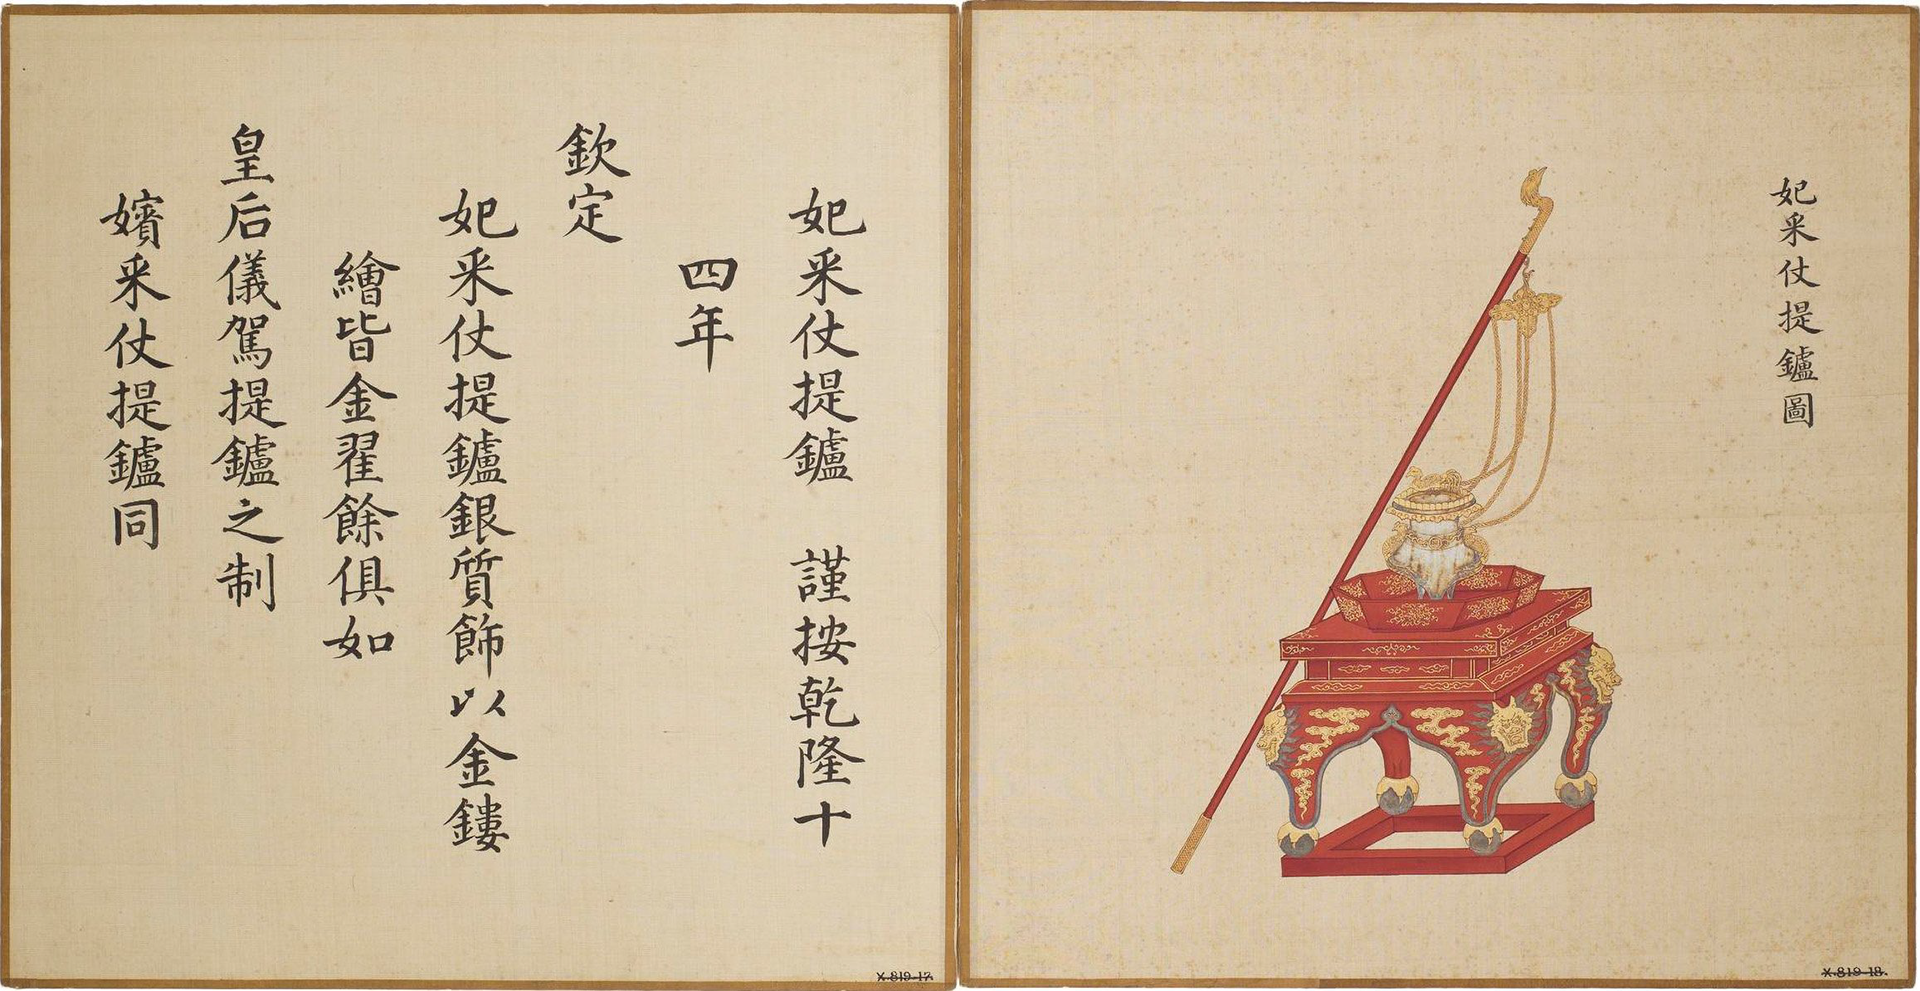 妃采仗提鑪圖
妃采仗提鑪　謹按乾隆十
四年
欽定
妃采仗提鑪銀質飾以金鏤
繪皆金翟餘俱如
皇后儀駕提鑪之制
嬪采仗提鑪同
X.819-17.
X.819-18.